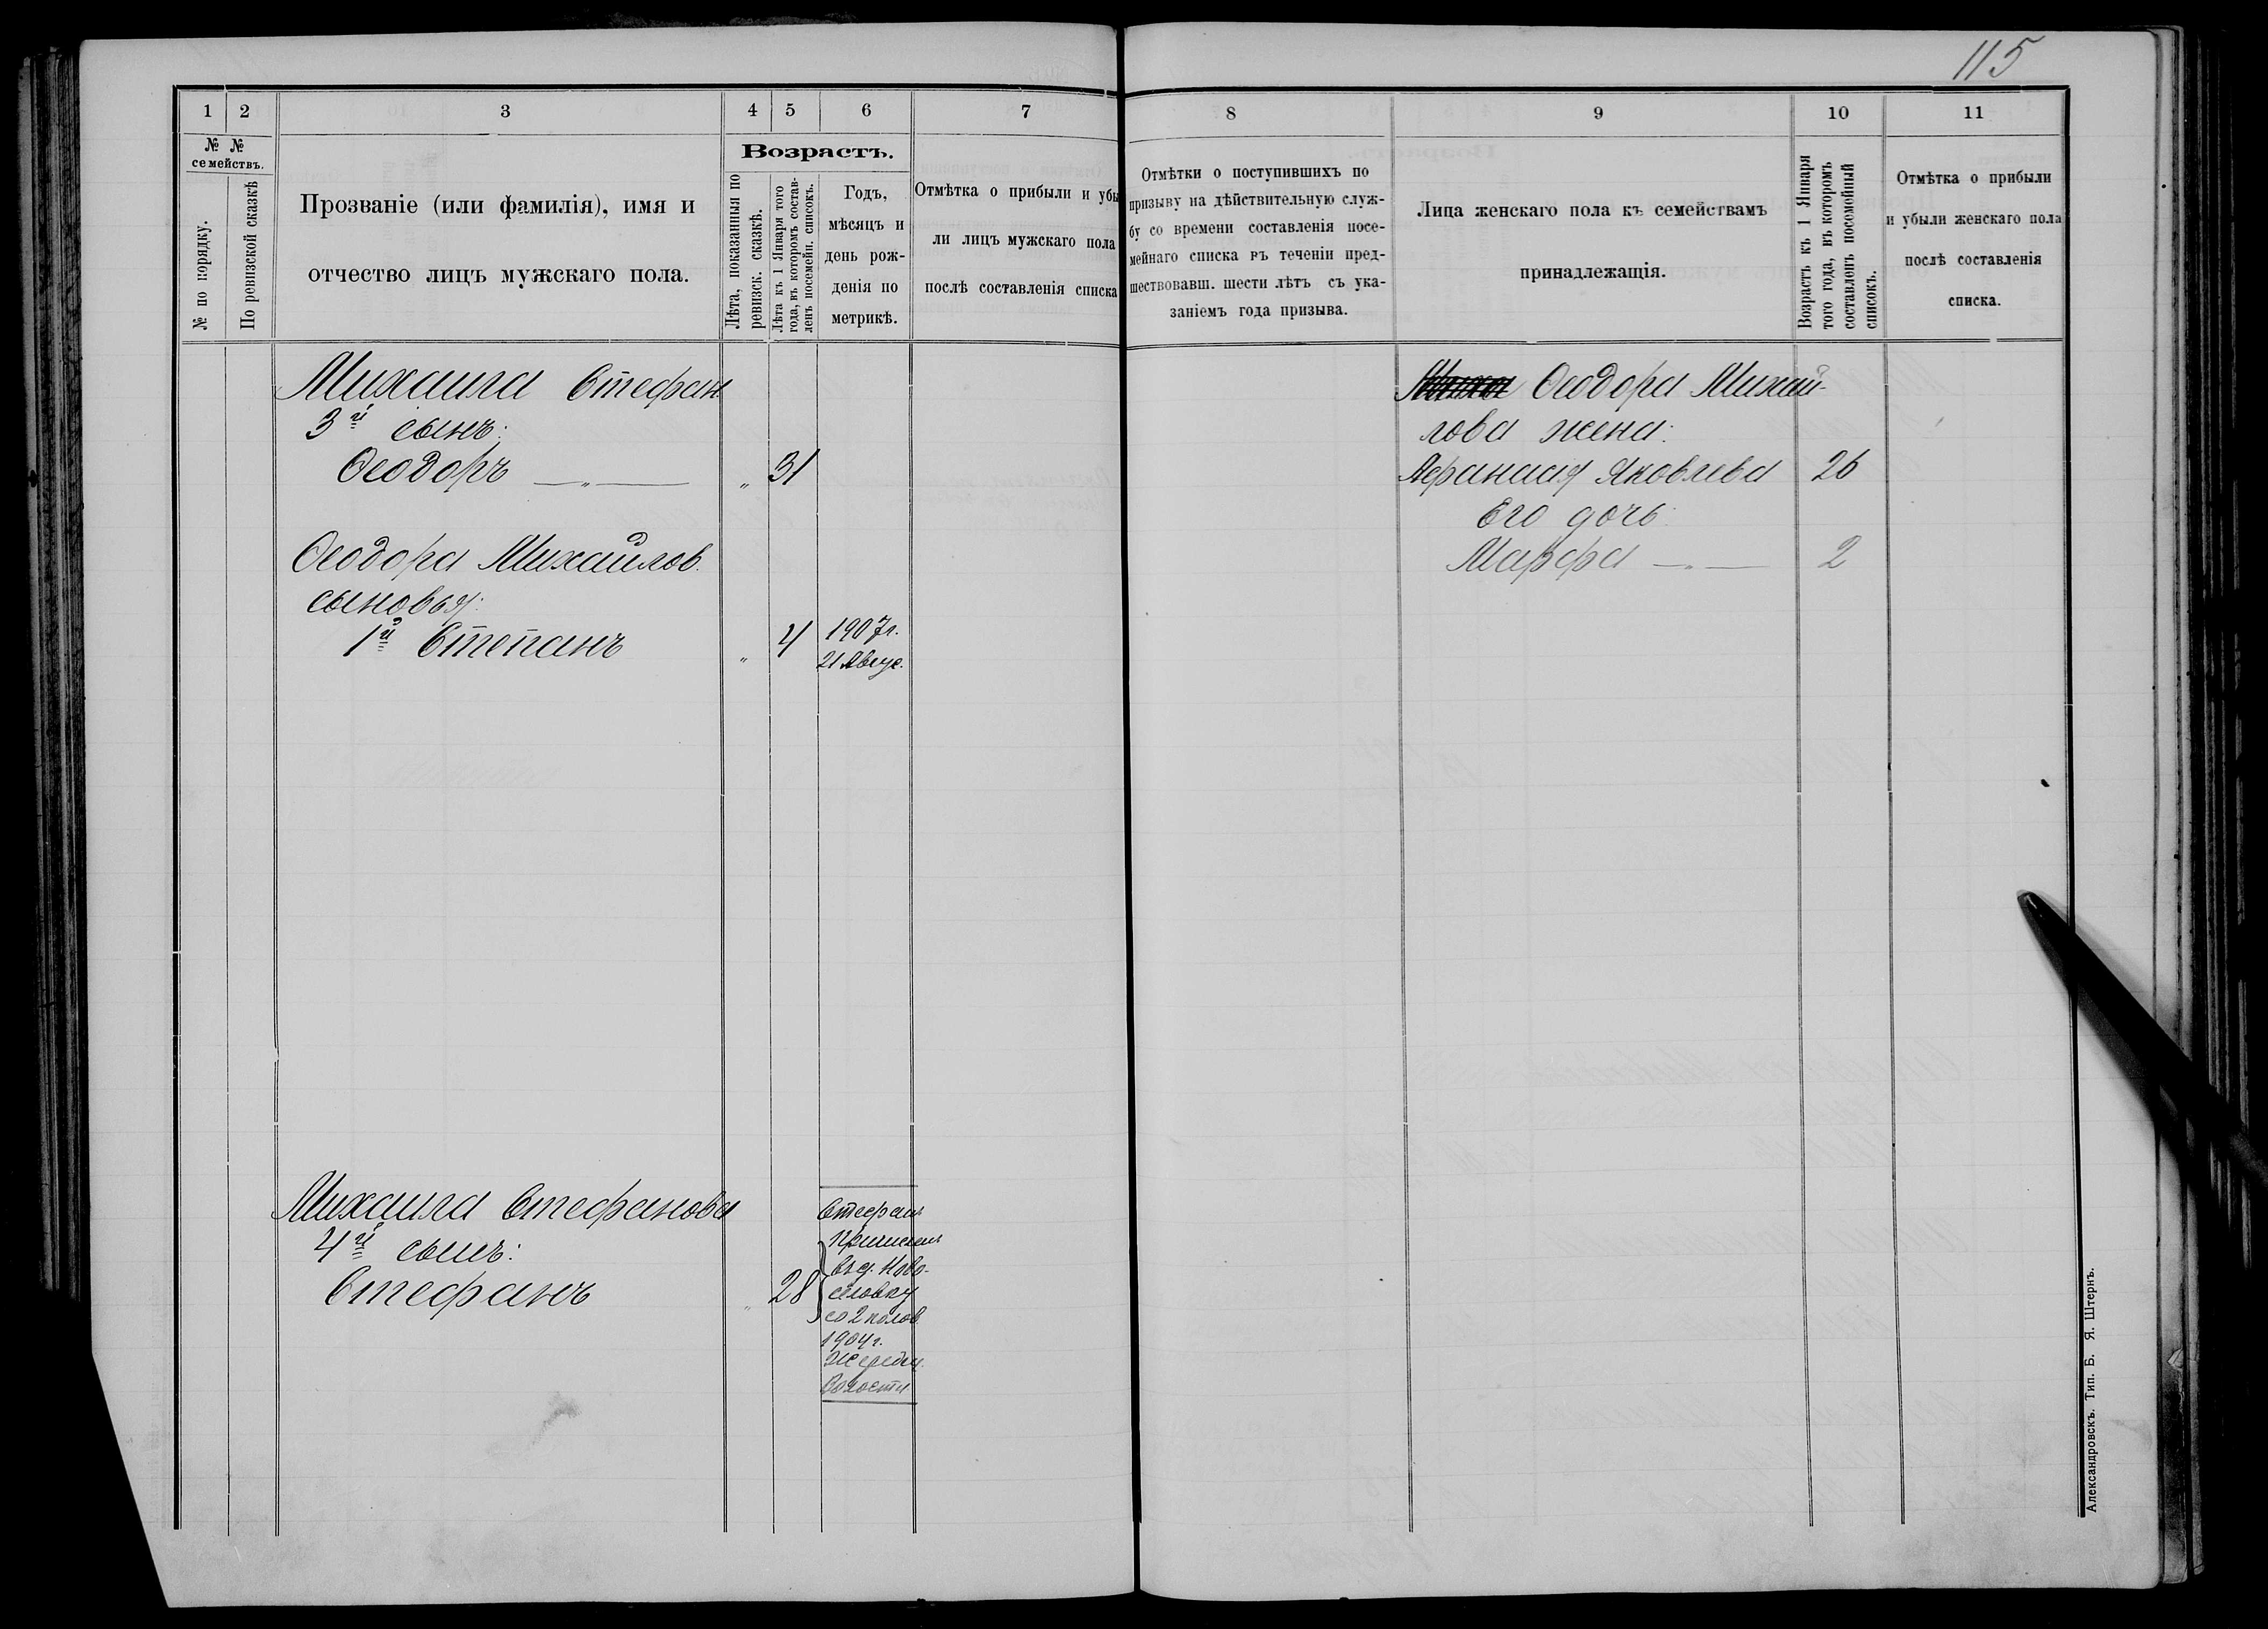 115
1
2
3
4
5
6
7
8
9
10
11
№ №
семействъ.
№ по порядку.
По ревизской сказкѣ
Прозваніе (или фамилія), имя и
отчество лицъ мужскаго пола.
Возрастъ.
Лѣта, показанныя по
ревизск. сказкѣ.
Лѣта къ 1 Января того
года, въ которомъ состав-
ленъ посемейн. списокъ.
Годъ,
мѣсяцъ и
день рож-
денія по
метрикѣ.
Отмѣтка о прибыли и убы
ли лицъ мужскаго пола
послѣ составленія списка
Отмѣтки о поступившихъ по
призыву на дѣйствительную служ-
бу со времени составленія посе-
мейнаго списка въ теченіи пред-
шествовавш. шести лѣтъ съ ука-
заніемъ года призыва.
Лица женскаго пола къ семействамъ
принадлежащія.
Возрастъ къ 1 Января
того года, въ которомъ
составленъ посемейный
списокъ.
Отмѣтка о прибыли
и убыли женскаго пола
послѣ составленія
списка.
Михаила Стефан
3й сынъ:
Ѳеодоръ — „ — „ 31
Ѳеодора Михайлов.
сыновья:
1й Степанъ „ 4 1907 г.
21 Авгус.
Михаила Стефанова
4й сынъ:
Стефанъ „ 28
Стефанъ
Причислен
въ д. Ново-
селовку
со 2 полов.
1904 г.
Жеребц.
Волости
Ѳеодора Михай-
лова жена:
Афанасія Яковлева 26
Его дочь:
Марфа — „ — 2
Александровскъ. Тип. Б. Я. Штернъ.